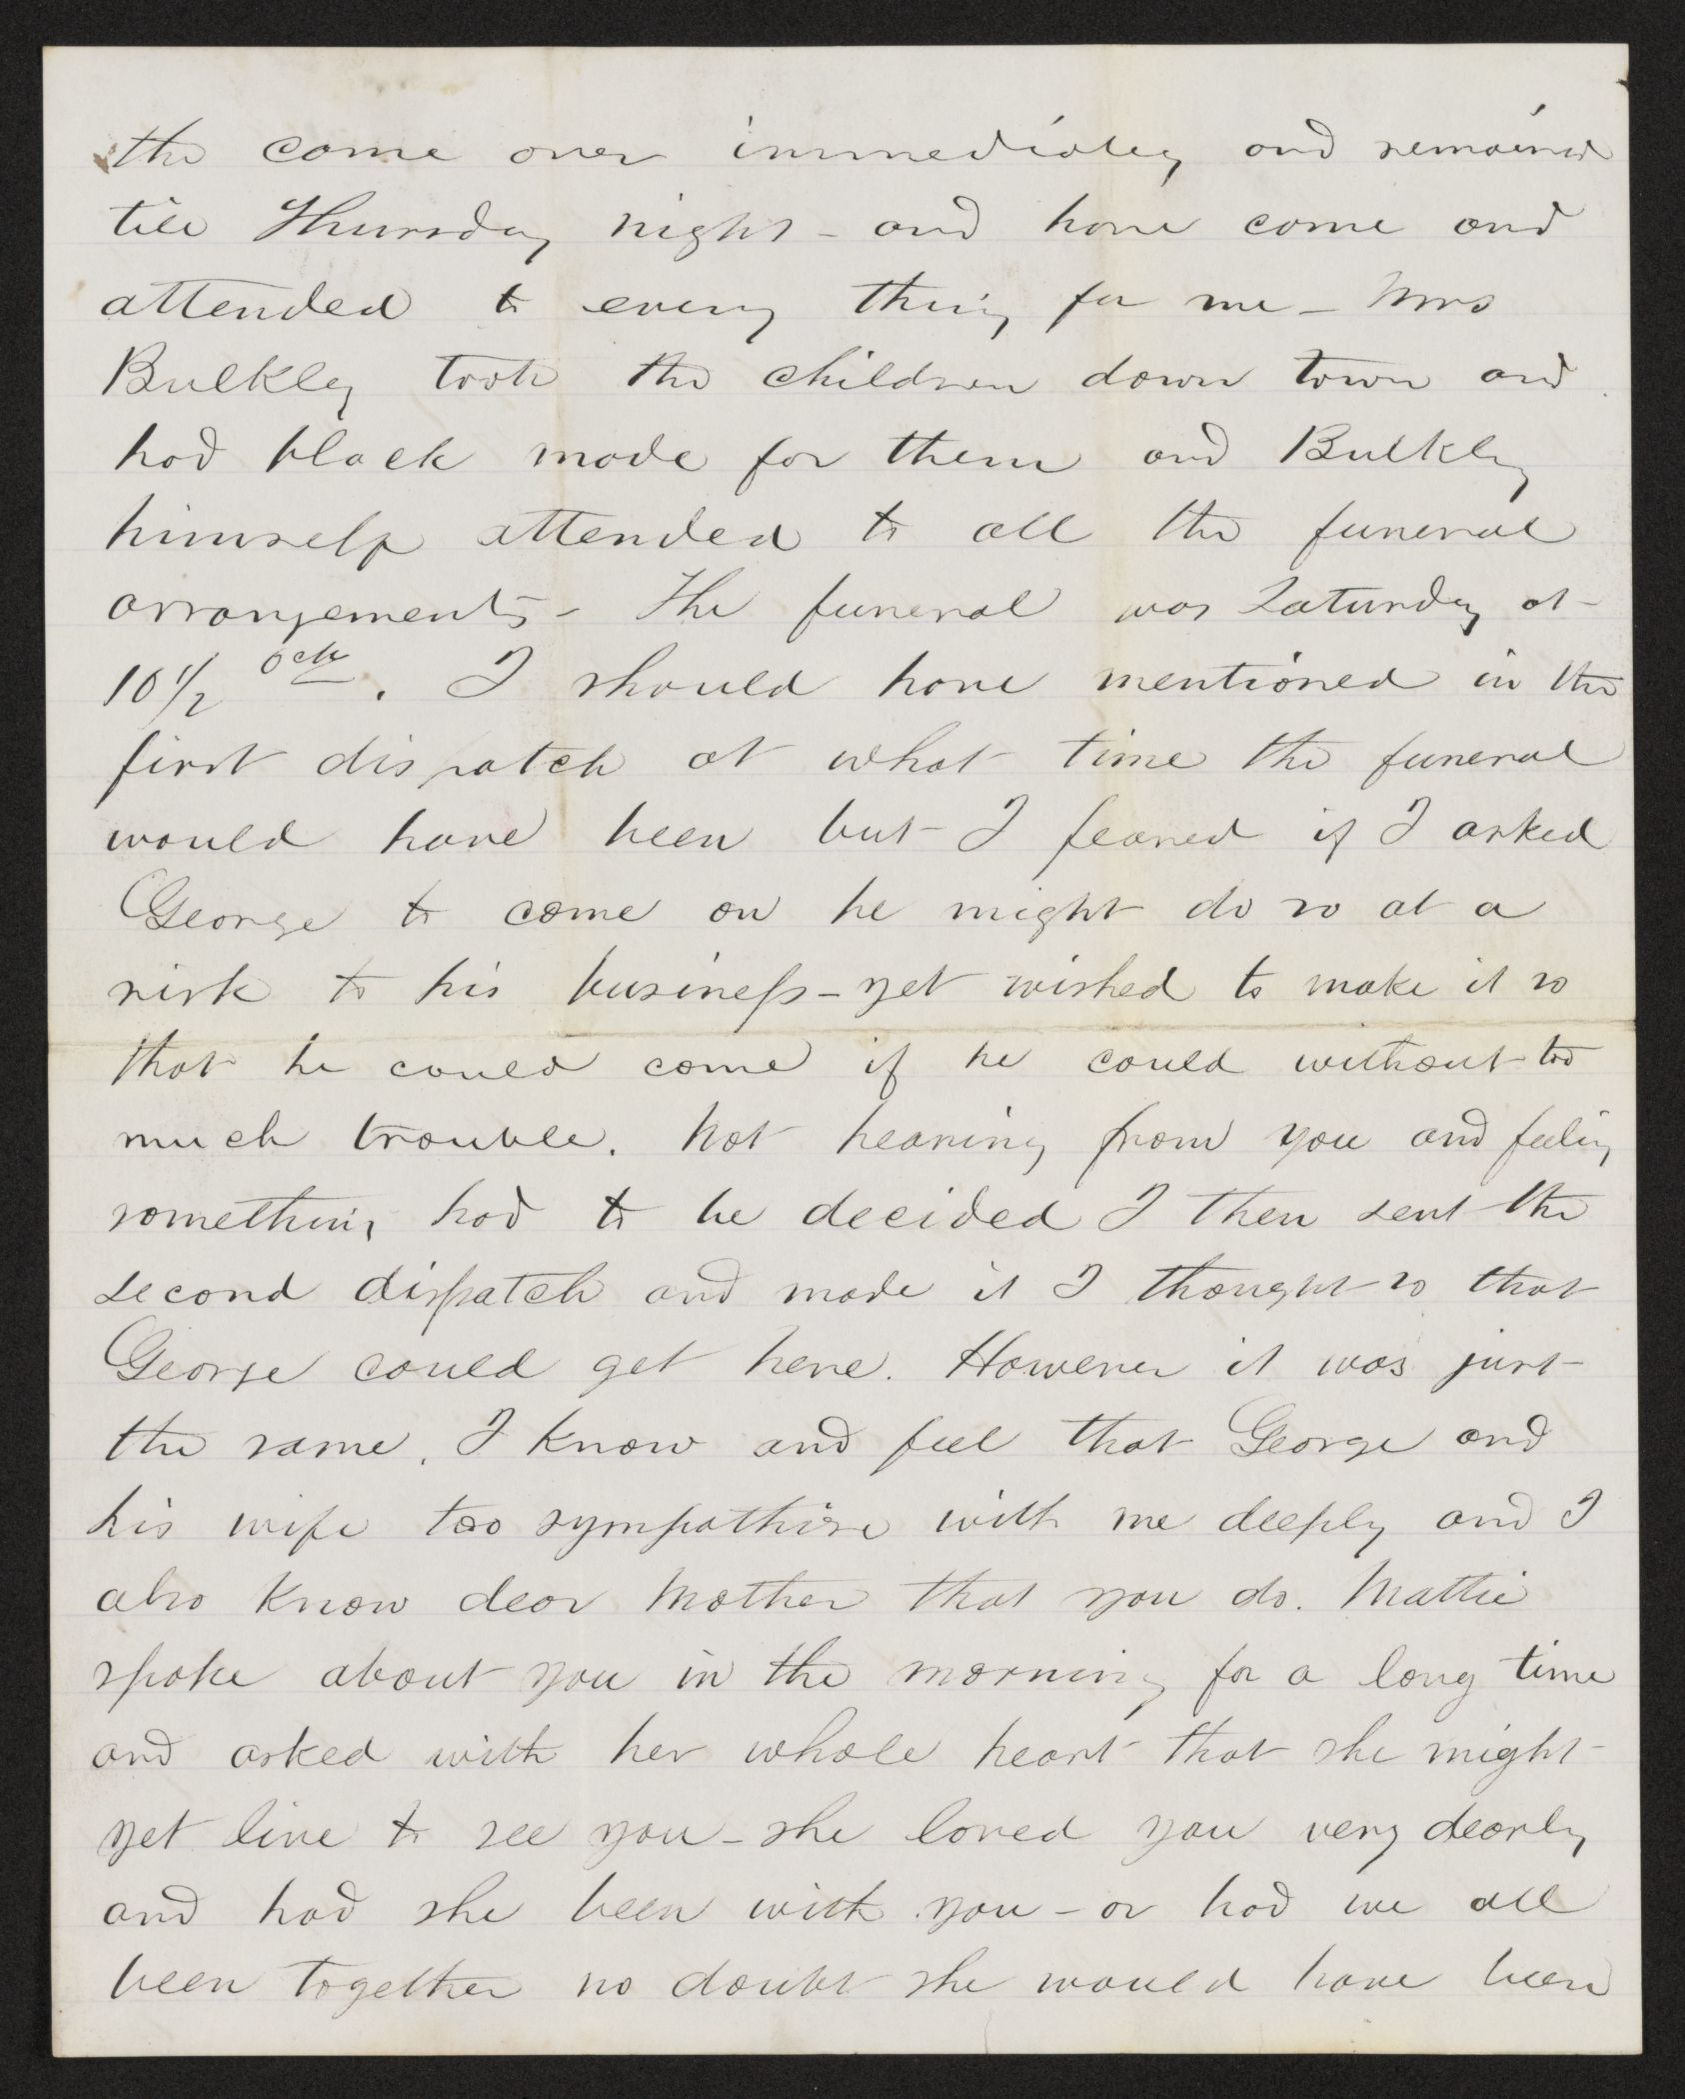 the came over immediatey and remained
till Thursday night - and have come and
attended to every thing for me - Mrs
Bulkley took the children down town and
had black made for them and Bulkley
himself attended to all the funeral
arrangements - The funeral was Saturday at
10 1/2 ock. I should have mentioned in the
first dispatch at what time the funeral
would have been but I feared if I asked
George to come on he might do so at a
risk to his business - yet wished to make it so
that he could come if he could without too
much trouble. Not hearing from you and feeling
something had to be decided I then sent the
second dispatch and made it I thought so that
George could get here. However it was just
the same. I know and feel that George and
his wife too sympathise with me deeply and I
also know dear Mother that you do. Mattie
spoke about you in the morning for a long time
and asked with her whole heart that she might
yet live to see you - she loved you very dearly
and had she been with you - or had we all
been together no doubt she would have been